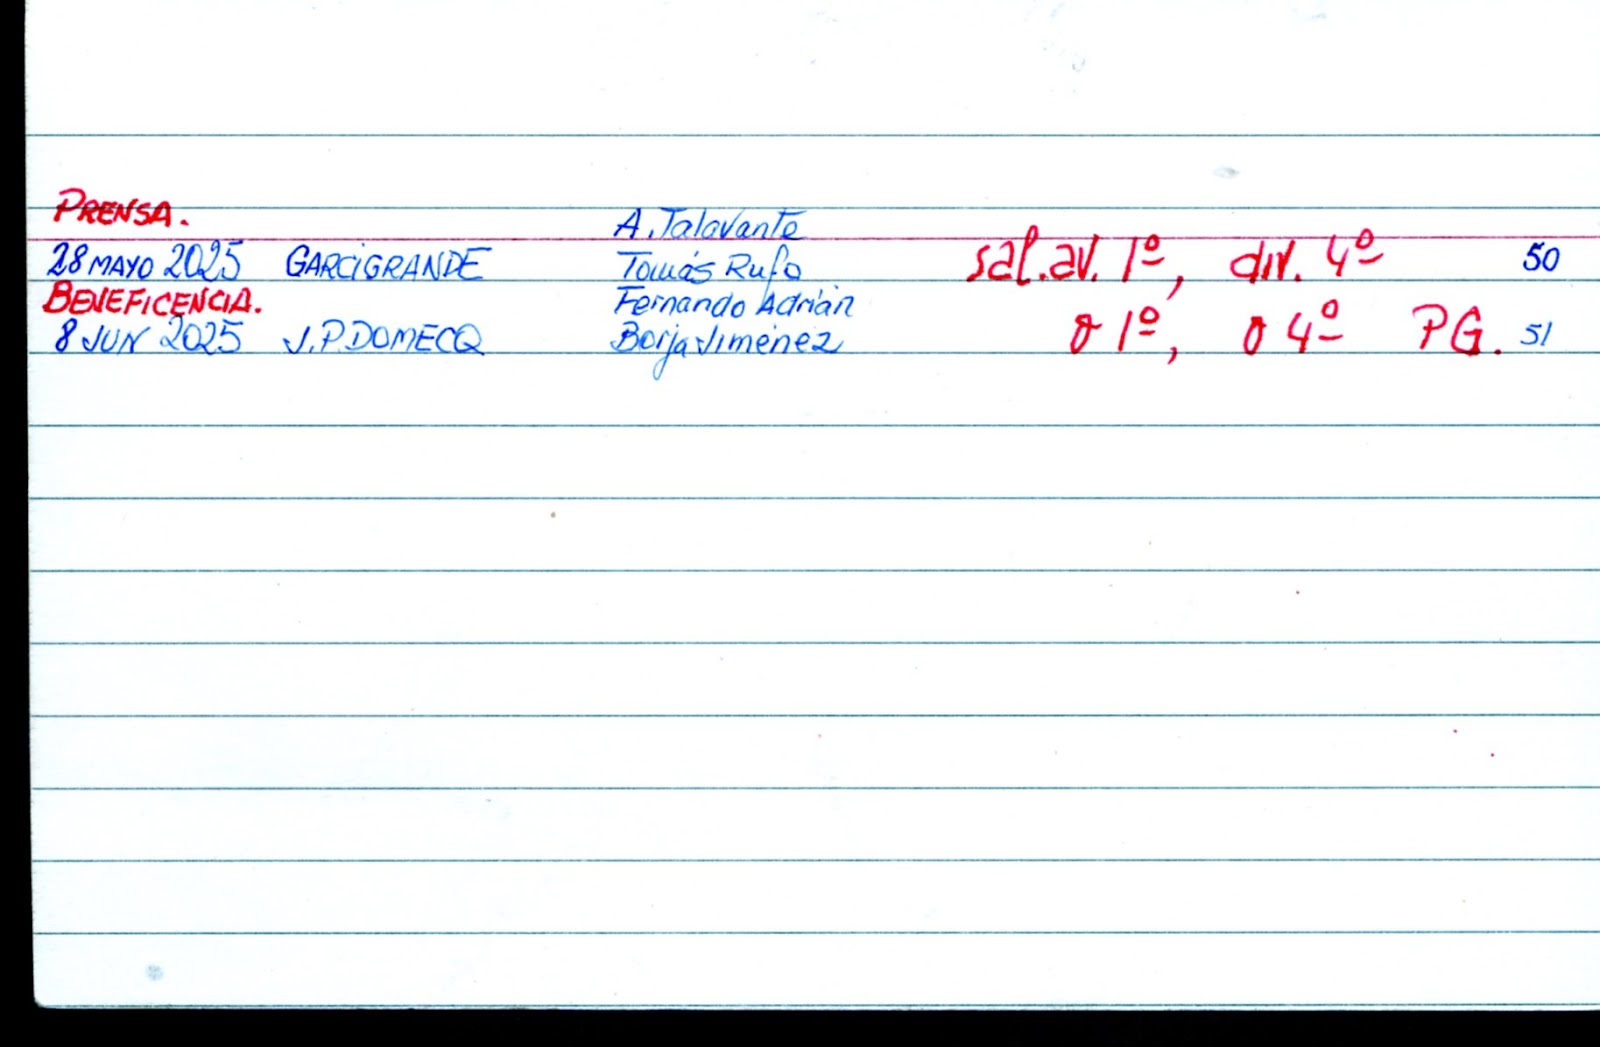 PRENSA.
A. Talavante
28 MAYO 2025 GARCIGRANDE Tomás Rufo sal.av. 1º, div. 4º 50
BENEFICENCIA. Fernando Adrián
8 JUN 2025 J.P. DOMECQ Borja Jiménez o 1º, o 4º PG. 51